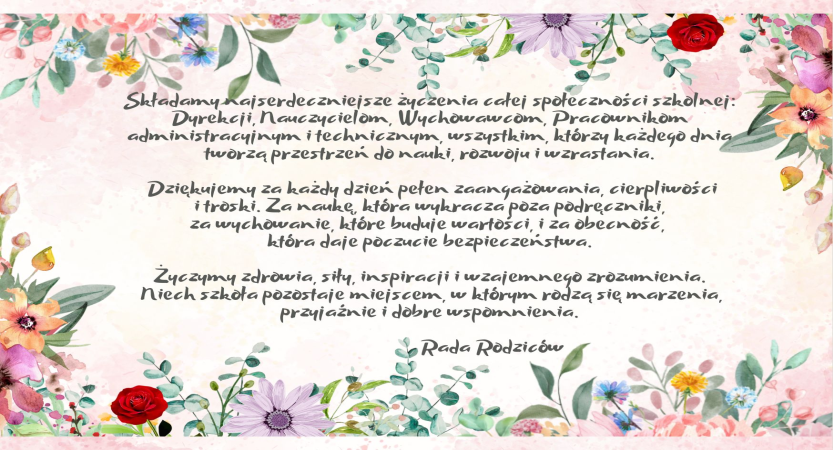 Składamy najserdeczniejsze życzenia całej społeczności szkolnej:
Dyrekcji, Nauczycielom, Wychowawcom, Pracownikom
administracyjnym i technicznym, wszystkim, którzy każdego dnia
tworzą przestrzeń do nauki, rozwoju i wzrastania.
Dziękujemy za każdy dzień pełen zaangażowania, cierpliwości
i troski. Za naukę, która wykracza poza podręczniki,
za wychowanie, które buduje wartości, i za obecność,
która daje poczucie bezpieczeństwa.
Życzymy zdrowia, siły, inspiracji i wzajemnego zrozumienia.
Niech szkoła pozostaje miejscem, w którym rodzą się marzenia,
przyjaźnie i dobre wspomnienia.
Rada Rodziców